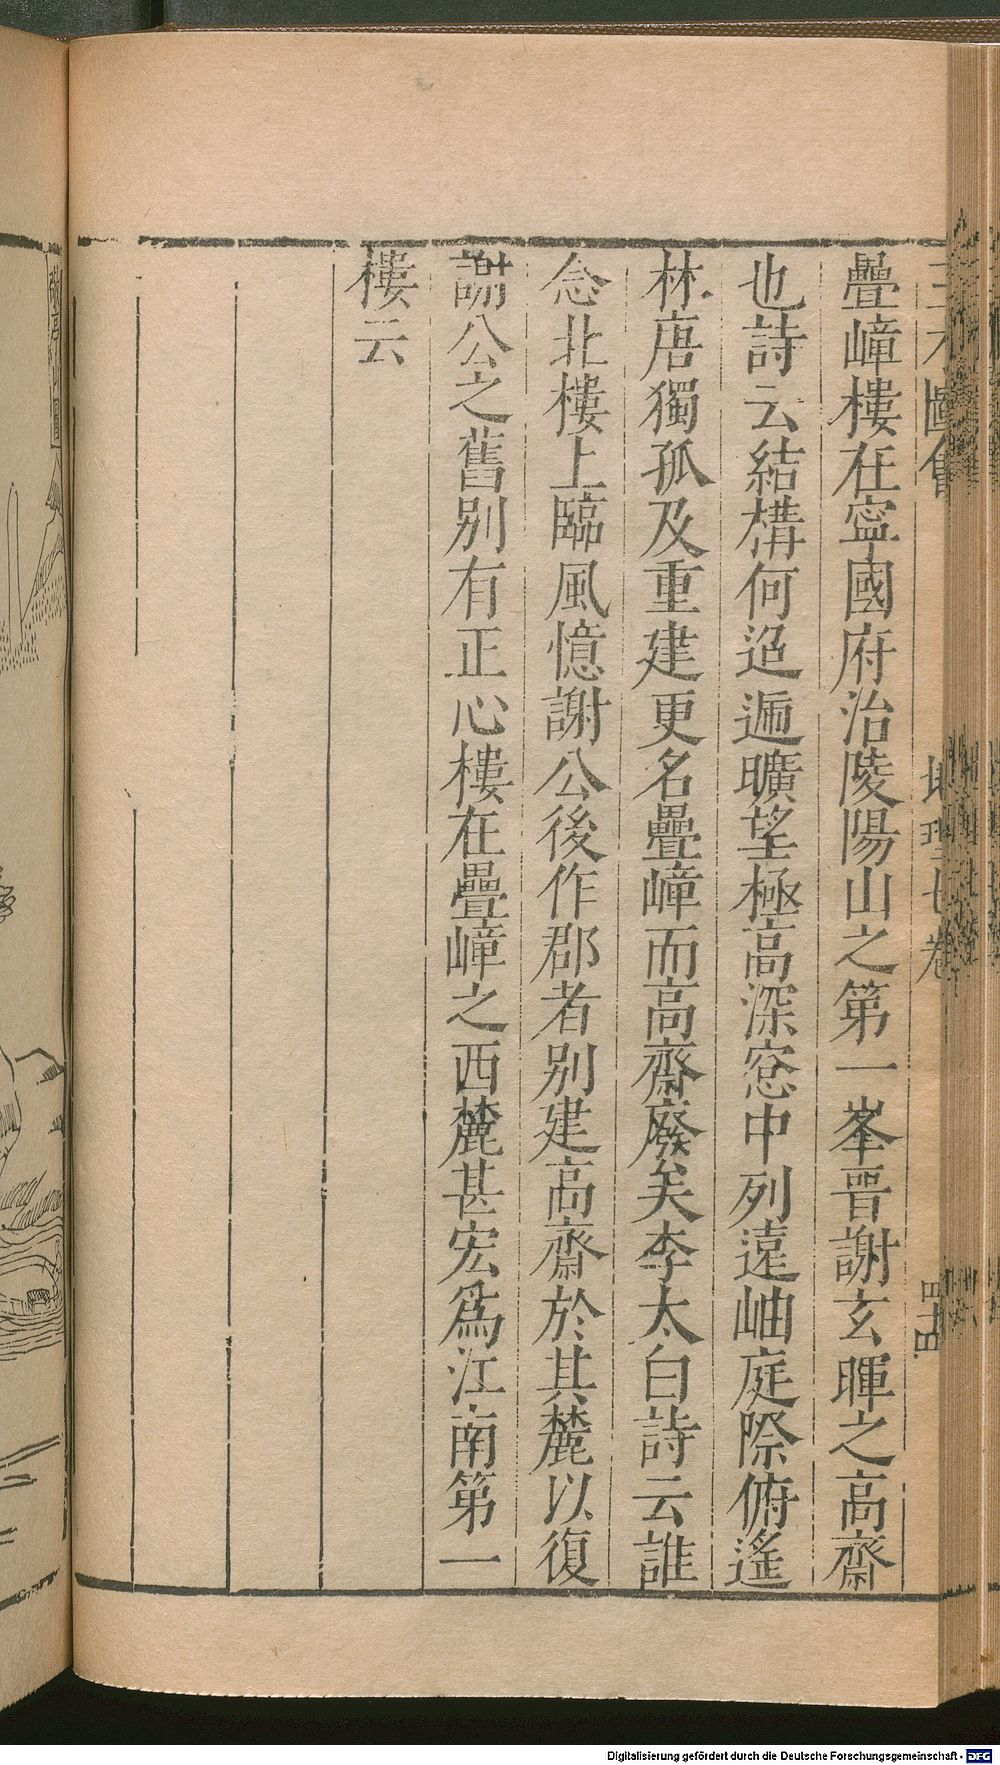 三才圖會 地理七卷 四十五
疊嶂樓在寧國府治陵陽山之第一峯晉謝玄暉之高齋
也詩云結構何迢遞曠望極高深窓中列遠岫庭際俯遙
林唐獨孤及重建更名疊嶂而高齋廢矣李太白詩云誰
念北樓上臨風憶謝公後作郡者別建高齋於其麓以復
謝公之舊別有正心樓在疊嶂之西麓甚宏爲江南第一
樓云
Digitalisierung gefördert durch die Deutsche Forschungsgemeinschaft - DFG